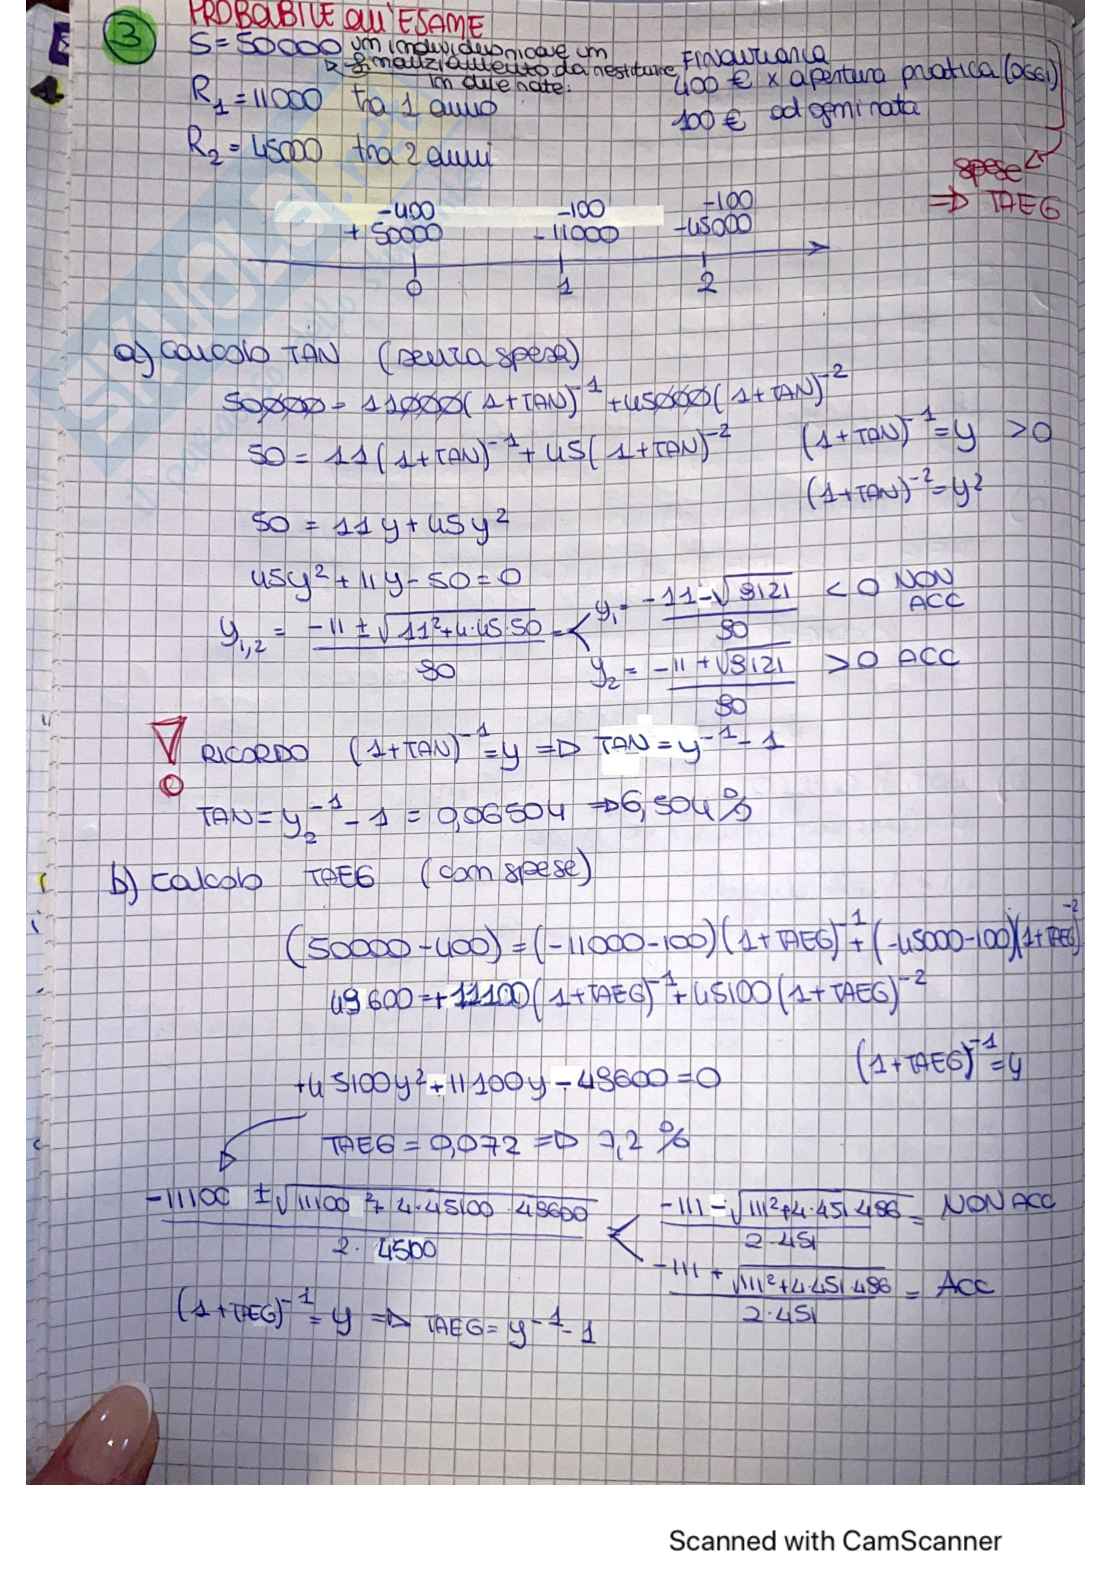 PROBABILE all'ESAME
3
S = 50000 un individuo riceve un
finanziamento da restituire
in due rate.
Finanziaria
400 € x apertura pratica (oggi)
100 € ad ogni rata
R1 = 11000 tra 1 anno
R2 = 45000 tra 2 anni
spese
=D TAEG
-400 -100 -100
+50000 -11000 -45000
0 1 2
a) calcolo TAN (senza spese)
50000 = 11000(1+TAN)^-1 + 45000(1+TAN)^-2
50 = 11(1+TAN)^-1 + 45(1+TAN)^-2 (1+TAN)^-1 = y > 0
(1+TAN)^-2 = y²
50 = 11y + 45y²
45y² + 11y - 50 = 0
y1,2 = (-11 ± √(11² + 4·45·50))/90 = < y1 = (-11 - √9121)/90 < 0 NON ACC
y2 = (-11 + √9121)/90 > 0 ACC
RICORDO (1+TAN)^-1 = y =D TAN = y^-1 - 1
TAN = y2^-1 - 1 = 0,06504 =D 6,504%
b) calcolo TAEG (con spese)
(50000-400) = (-11000-100)(1+TAEG)^-1 + (-45000-100)(1+TAEG)^-2
49600 = +11100(1+TAEG)^-1 + 45100(1+TAEG)^-2
(1+TAEG)^-1 = y
+45100y² + 11100y - 49600 = 0
TAEG = 0,072 =D 7,2%
(-11100 ± √(11100² + 4·45100·49600))/(2·4500) < (-111 - √(111² + 4·451·496))/(2·451) = NON ACC
(-111 + √(111² + 4·451·496))/(2·451) = ACC
(1+TAEG)^-1 = y =D TAEG = y^-1 - 1
Scanned with CamScanner